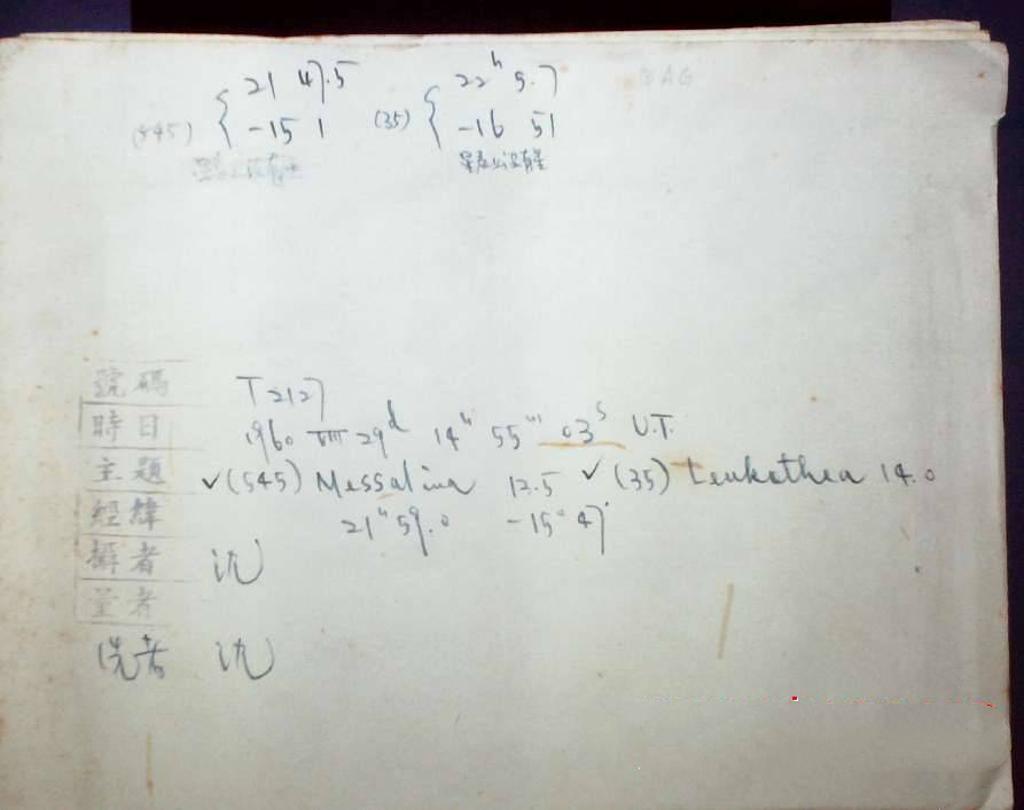 (545) { 21 47.5 (35) { 22ʰ 9.7
-15 1 -16 51
星表上没有星
號碼 T2127
時日 1960 VIII 29ᵈ 14ʰ 55ᵐ 03ˢ U.T.
主題 ✓(545) Messalina 12.5 ✓(35) Leukothea 14.0
經緯 21ʰ 59.0 -15° 47'
攝者 沈
量者
洗者 沈